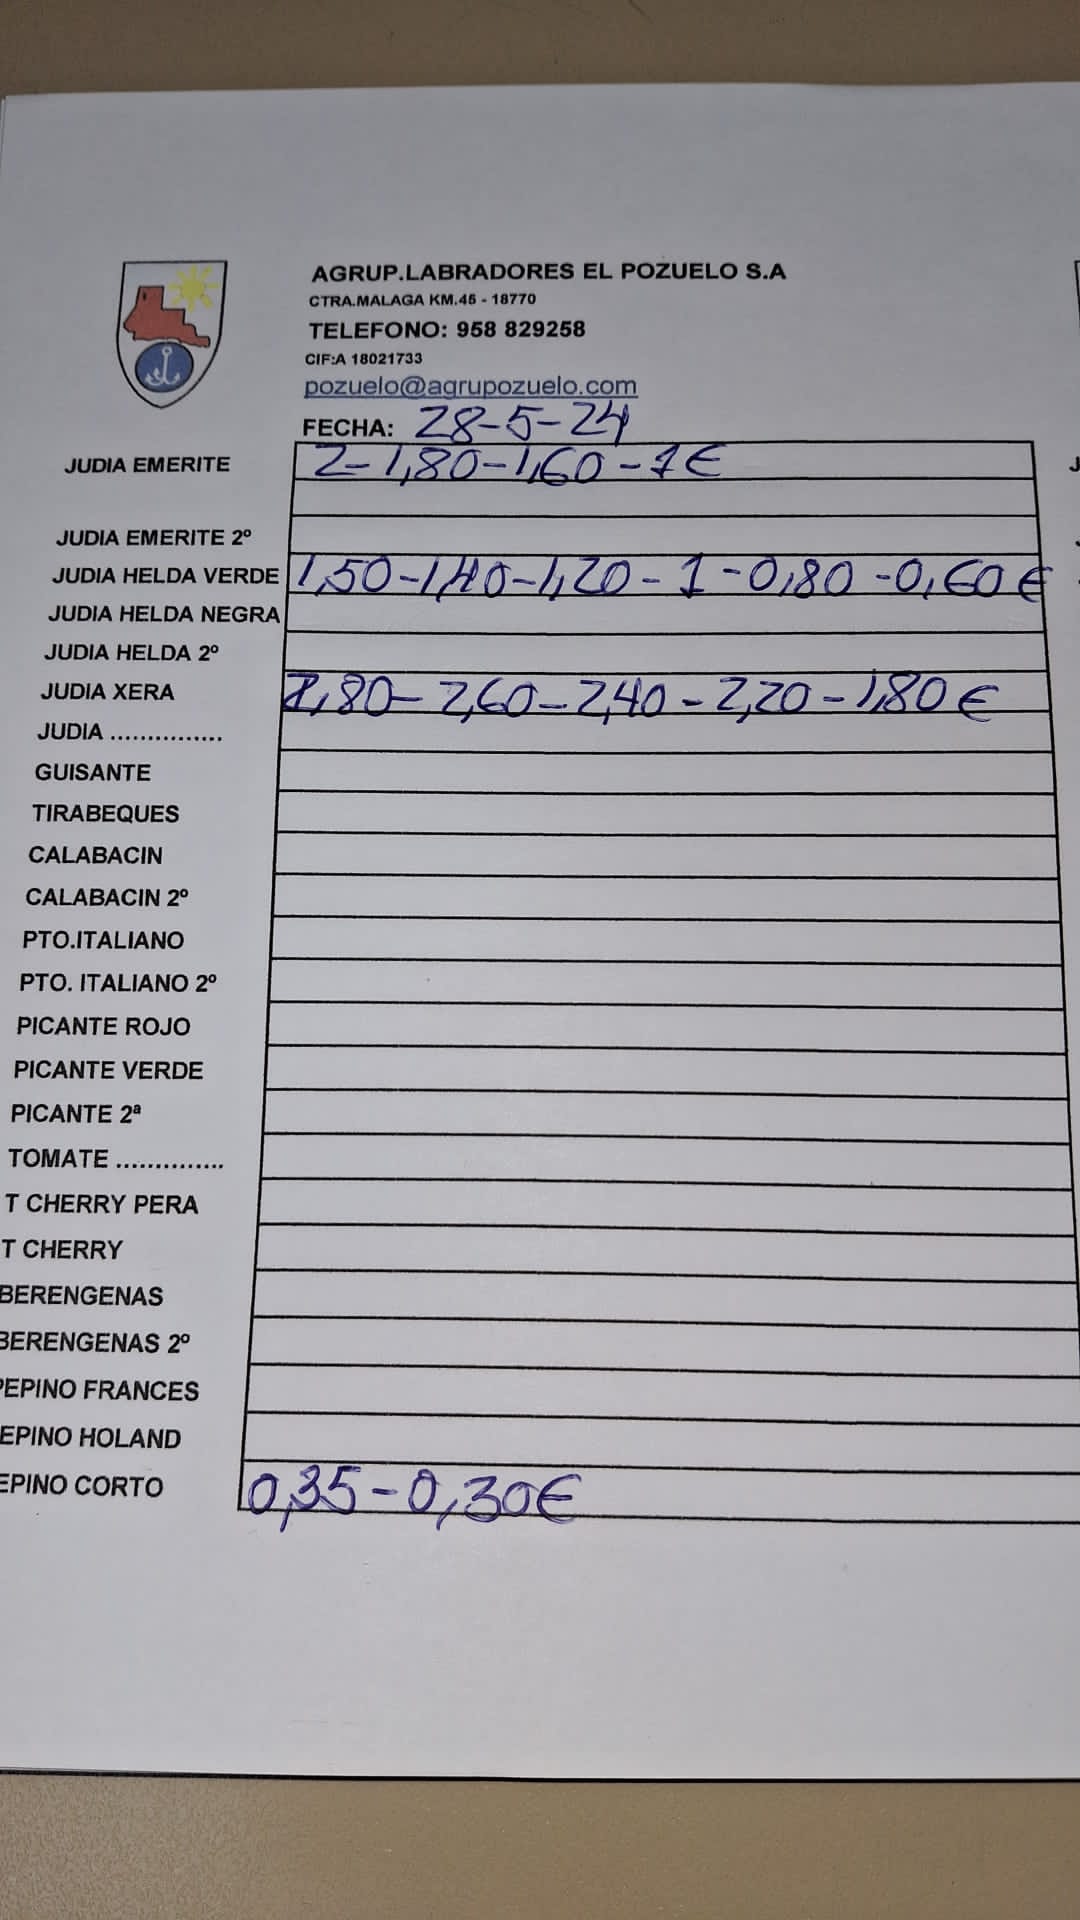 AGRUP.LABRADORES EL POZUELO S.A
CTRA.MALAGA KM.45 - 18770
TELEFONO: 958 829258
CIF:A 18021733
pozuelo@agrupozuelo.com
FECHA: 28-5-24
JUDIA EMERITE 2-1,80-1,60-1€
JUDIA EMERITE 2º
JUDIA HELDA VERDE 1,50-1,40-1,20-1-0,80-0,60€
JUDIA HELDA NEGRA
JUDIA HELDA 2º
JUDIA XERA 2,80-2,60-2,40-2,20-1,80€
JUDIA ...............
GUISANTE
TIRABEQUES
CALABACIN
CALABACIN 2º
PTO.ITALIANO
PTO. ITALIANO 2º
PICANTE ROJO
PICANTE VERDE
PICANTE 2ª
TOMATE ..............
T CHERRY PERA
T CHERRY
BERENGENAS
BERENGENAS 2º
PEPINO FRANCES
EPINO HOLAND
EPINO CORTO 0,35-0,30€